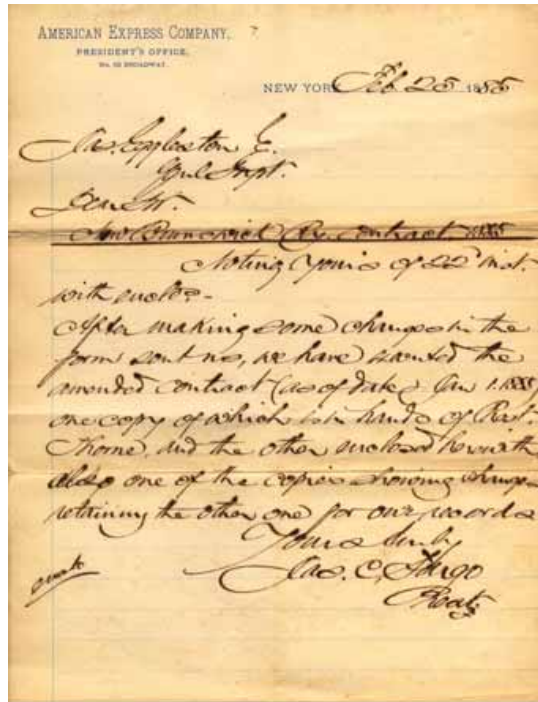 AMERICAN EXPRESS COMPANY,
PRESIDENT'S OFFICE,
No. 65 BROADWAY.
NEW YORK Feb 25 1885
Jas. Eggleston E.
Genl Supt.
Dear Sir.
New Brunswick Ry. Contract, 1885
Noting Yours of 22 inst.
with enclos.-
After making some changes in the
form sent us, we have executed the
amended contract (as of date, Jan 1. 1885)
one copy of which is in hands of Prest.
and the other enclosed herewith
also one of the copies showing changes
retaining the other one for our records
Yours truly
Jas. C. Fargo
Prest